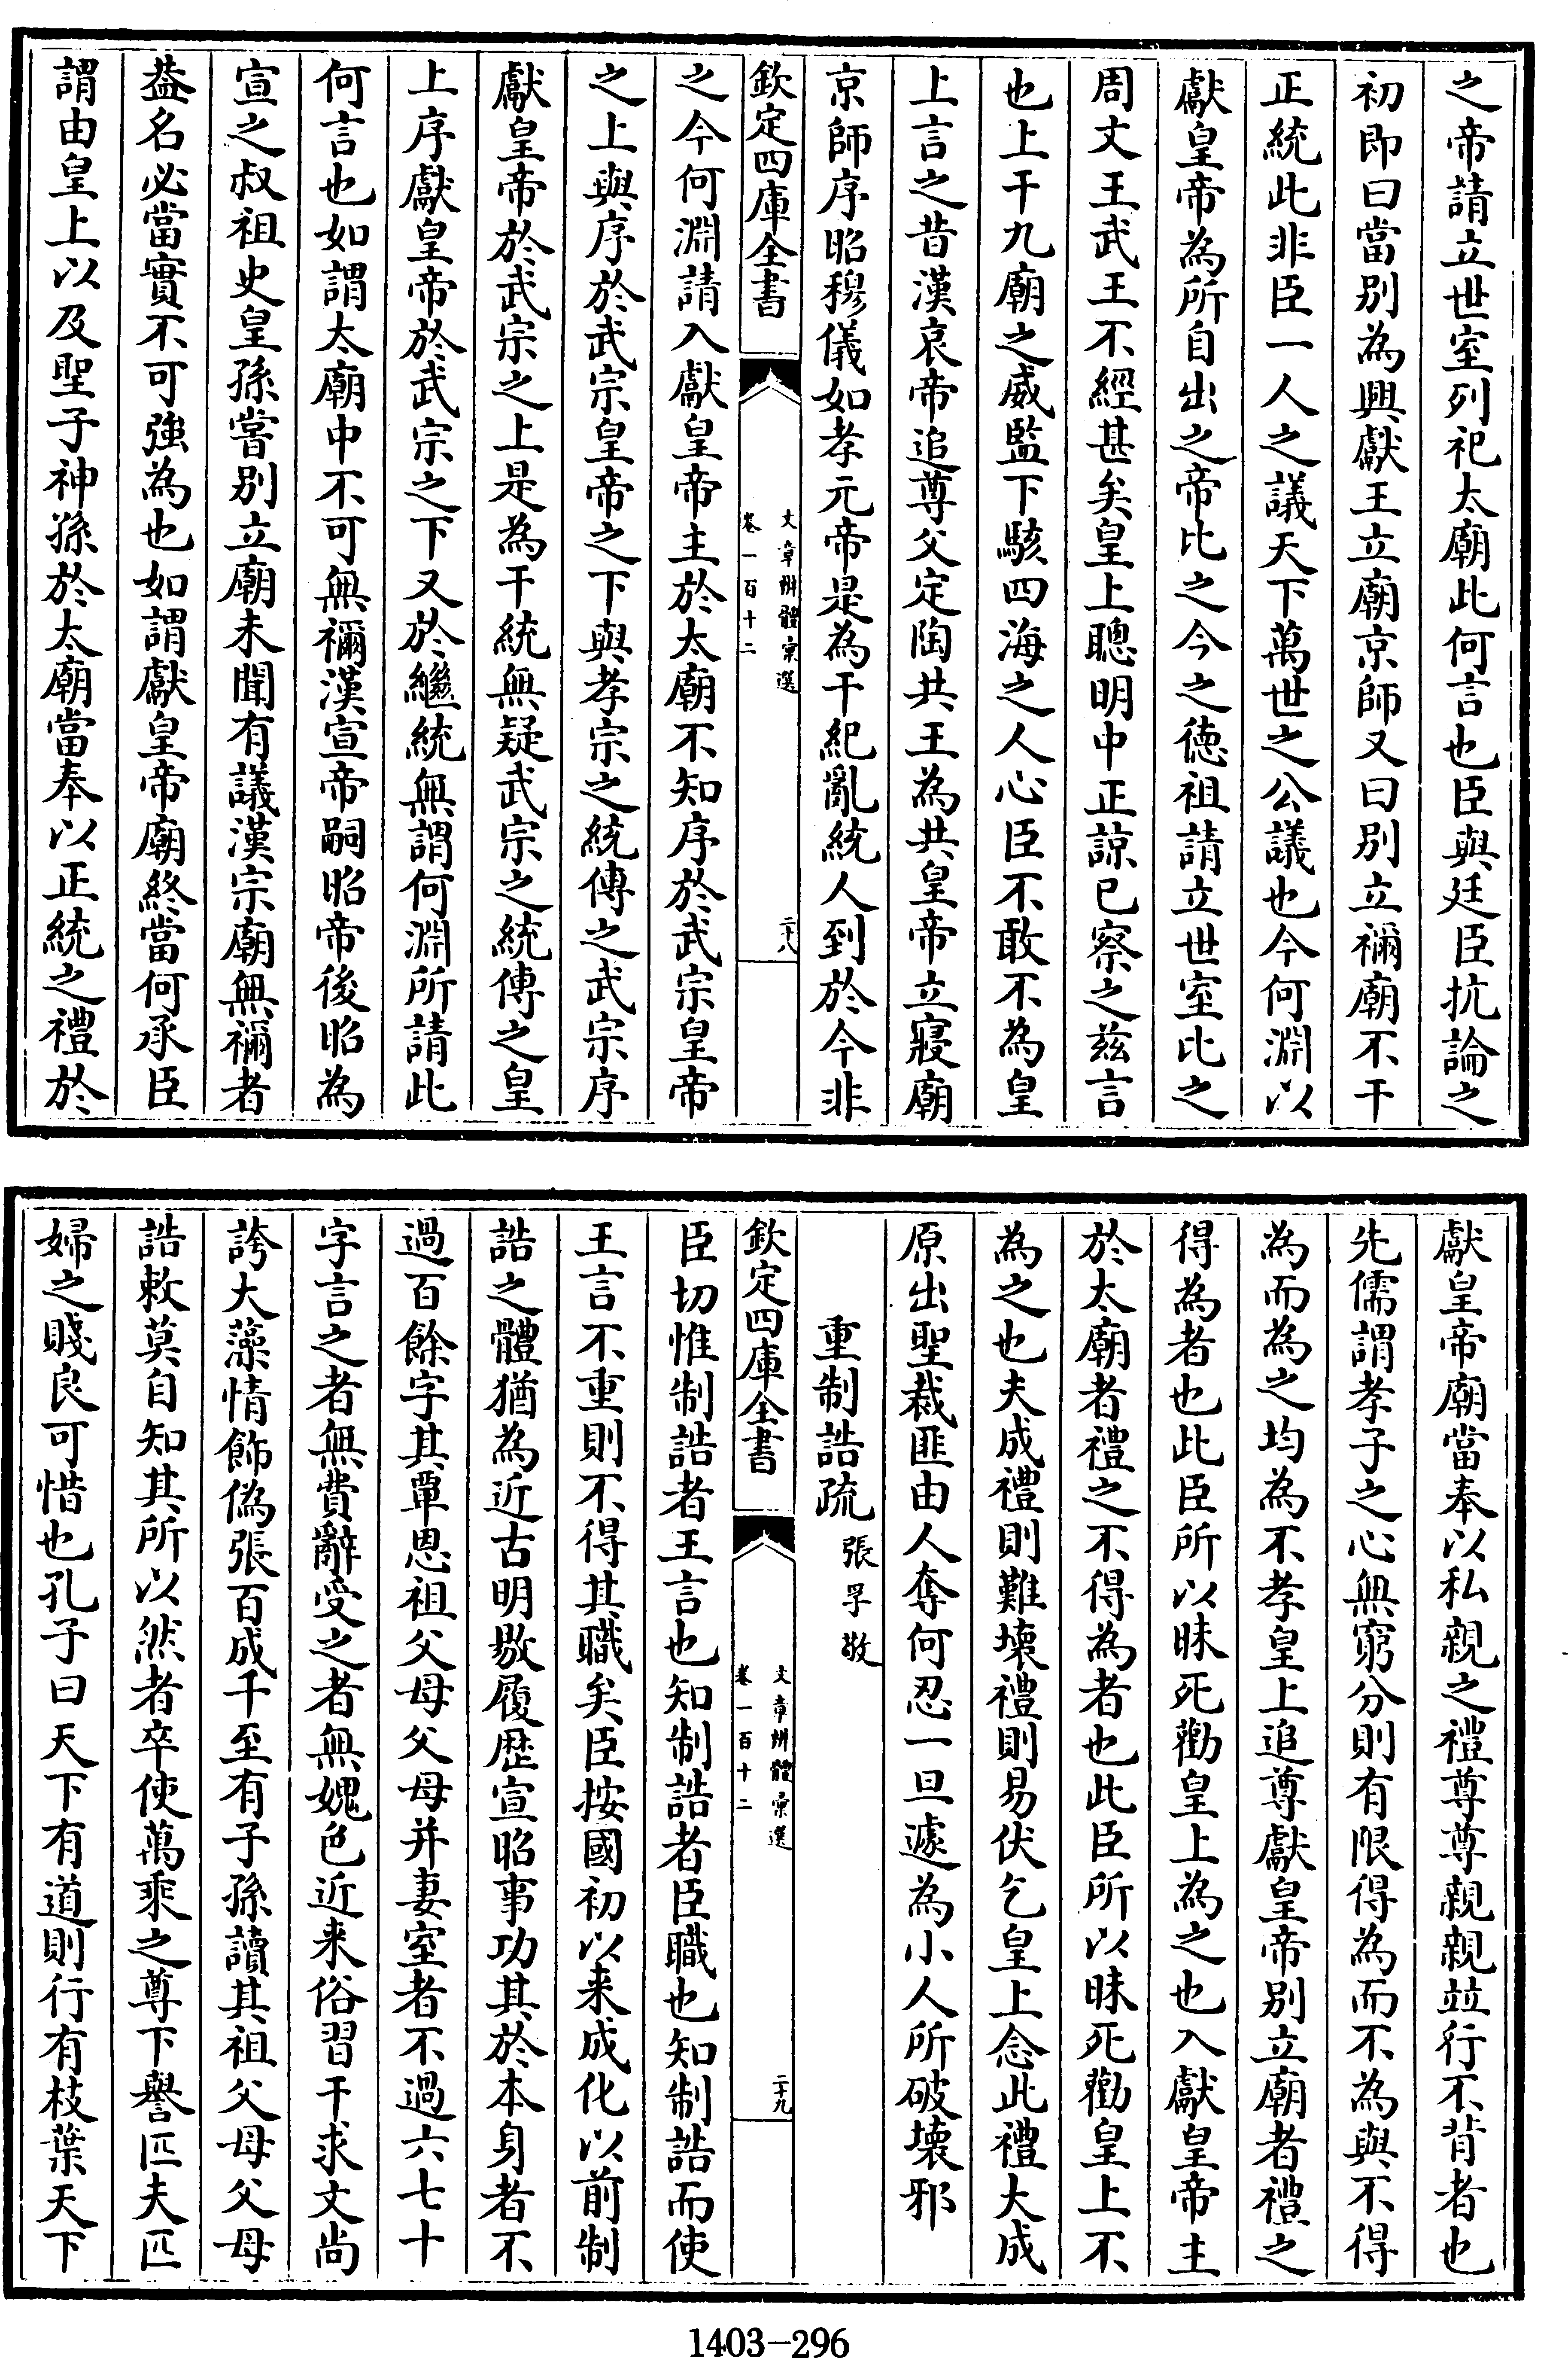 之帝請立世室列祀太廟此何言也臣與廷臣抗論之
初即曰當别為興獻王立廟京師又曰别立禰廟不干
正統此非臣一人之議天下萬世之公議也今何淵以
獻皇帝為所自出之帝比之今之徳祖請立世室比之
周文王武王不經甚矣皇上聰明中正諒已察之兹言
也上干九廟之威監下駭四海之人心臣不敢不為皇
上言之昔漢哀帝追尊父定陶共王為共皇帝立寢廟
京師序昭穆儀如孝元帝是為干紀亂統人到於今非
欽定四庫全書
文章辨體彙選
卷一百十二
二十八
之今何淵請入獻皇帝主於太廟不知序於武宗皇帝
之上與序於武宗皇帝之下與孝宗之統傳之武宗序
獻皇帝於武宗之上是為干統無疑武宗之統傳之皇
上序獻皇帝於武宗之下又於繼統無謂何淵所請此
何言也如謂太廟中不可無禰漢宣帝嗣昭帝後昭為
宣之叔祖史皇孫嘗别立廟未聞有議漢宗廟無禰者
葢名必當實不可強為也如謂獻皇帝廟終當何承臣
謂由皇上以及聖子神孫於太廟當奉以正統之禮於
獻皇帝廟當奉以私親之禮尊尊親親竝行不背者也
先儒謂孝子之心無窮分則有限得為而不為與不得
為而為之均為不孝皇上追尊獻皇帝别立廟者禮之
得為者也此臣所以昧死勸皇上為之也入獻皇帝主
於太廟者禮之不得為者也此臣所以昧死勸皇上不
為之也夫成禮則難壊禮則易伏乞皇上念此禮大成
原出聖裁匪由人奪何忍一旦遽為小人所破壊邪
重制誥疏 張孚敬
欽定四庫全書
文章辨體彙選
卷一百十二
二十九
臣切惟制誥者王言也知制誥者臣職也知制誥而使
王言不重則不得其職矣臣按國初以来成化以前制
誥之體猶為近古明敭履歴宣昭事功其於本身者不
過百餘字其覃恩祖父母父母并妻室者不過六七十
字言之者無費辭受之者無媿色近来俗習干求文尚
誇大藻情飾偽張百成千至有子孫讀其祖父母父母
誥敕莫自知其所以然者卒使萬乘之尊下譽匹夫匹
婦之賤良可惜也孔子曰天下有道則行有枝葉天下
1403-296